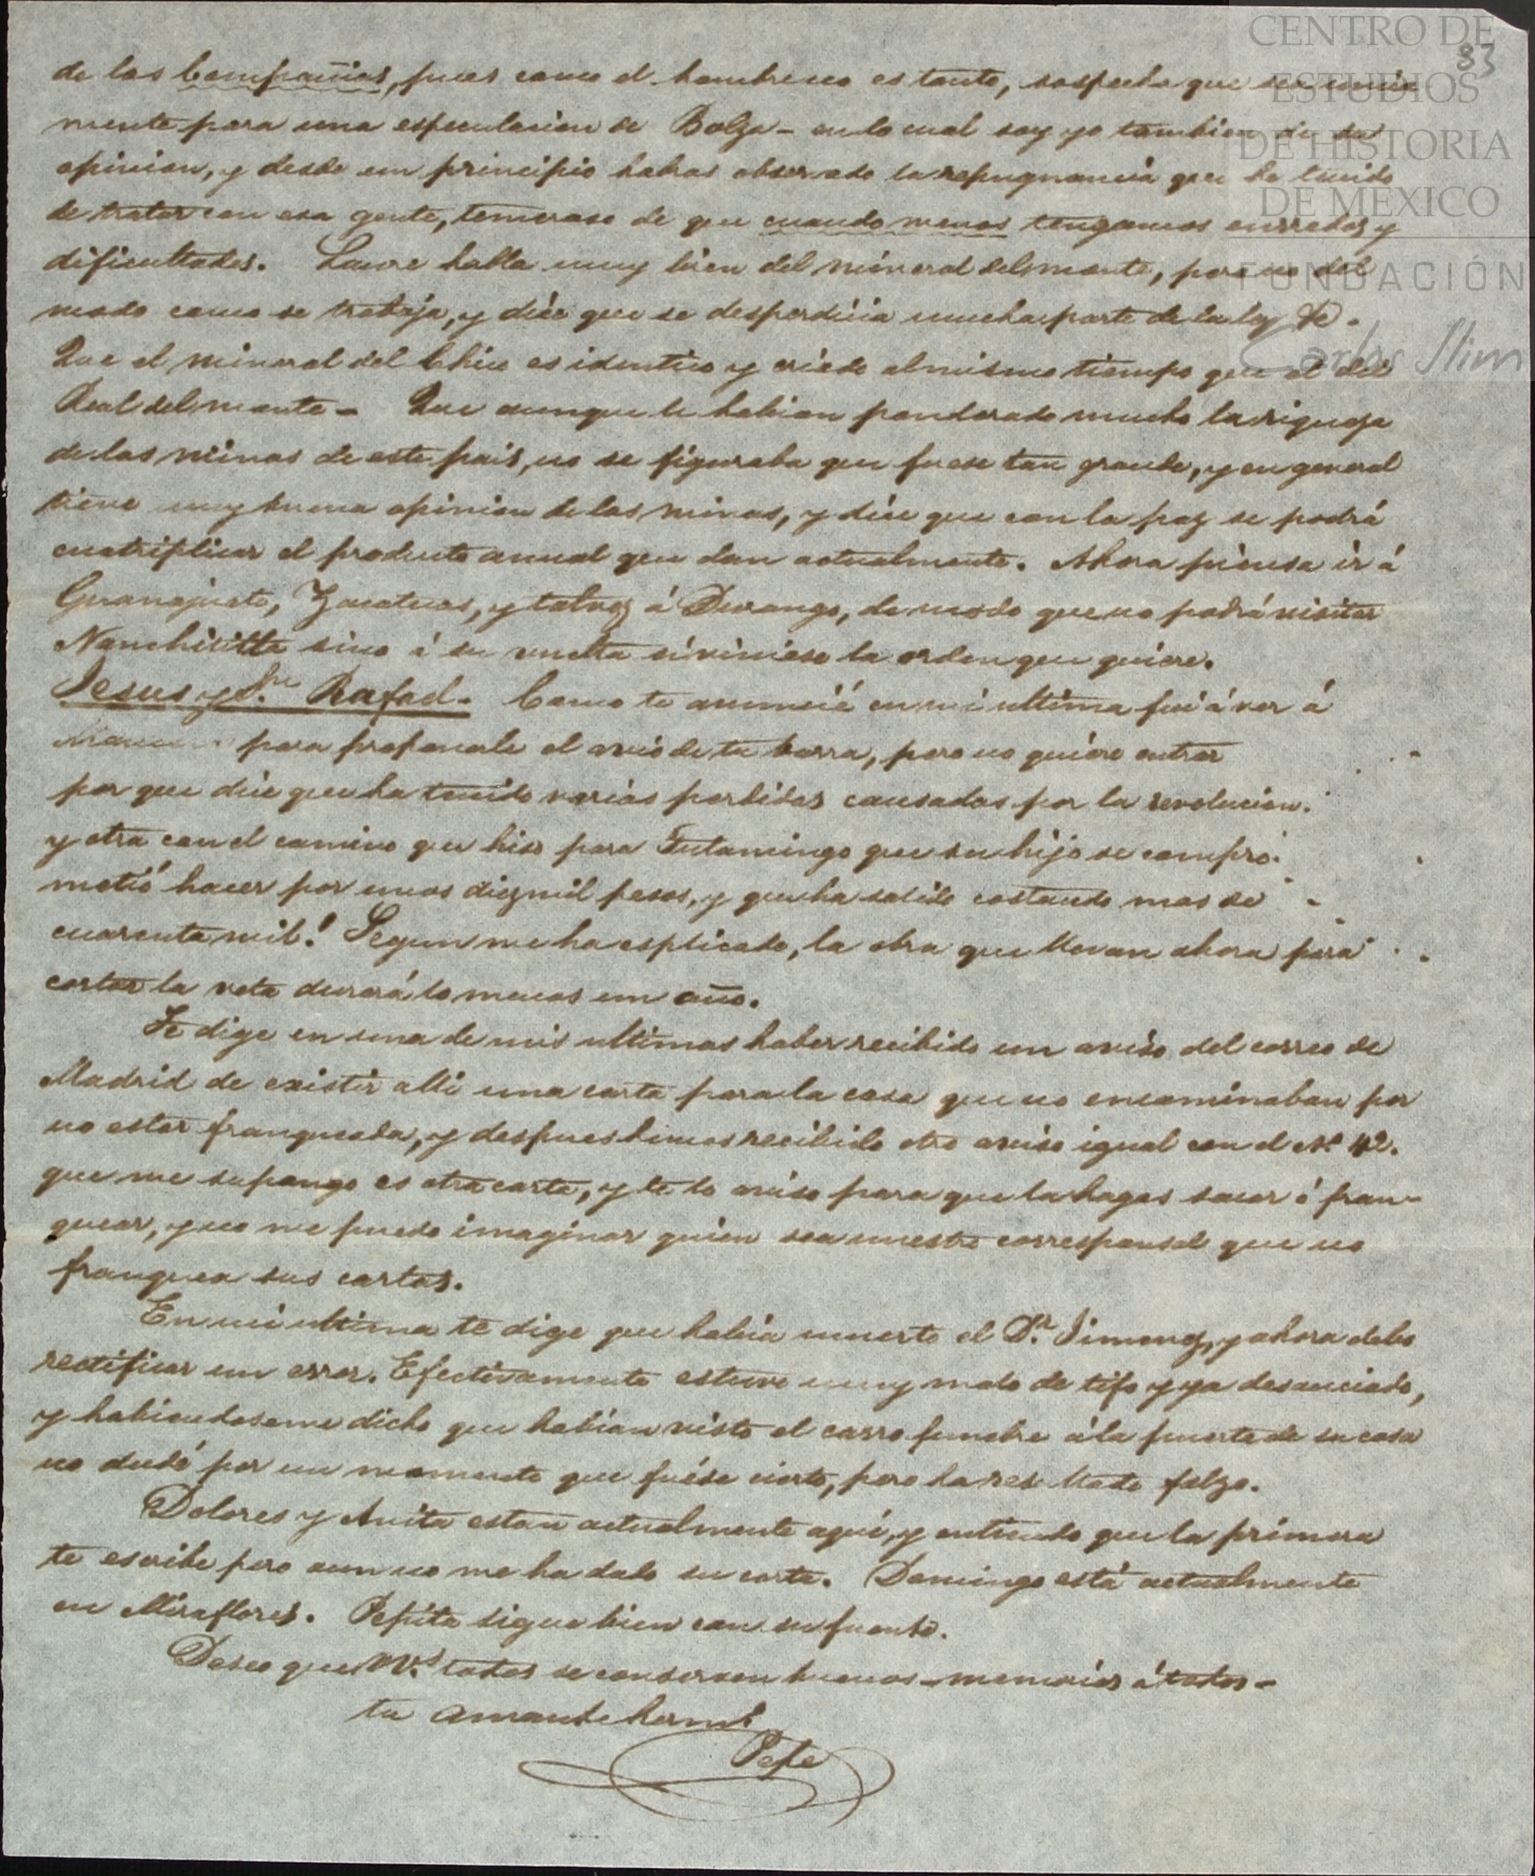 CENTRO DE
ESTUDIOS
DE HISTORIA
DE MEXICO
FUNDACIÓN
Carlos Slim
83
de las Compañias, pues como el hombre no es tonto, sospecha que sea unica
mente para una especulacion de Bolza - en lo cual soy yo tambien de su
opinion, y desde un principio habras observado la repugnancia que he tenido
de tratar con esa gente, temeroso de que cuando menos tengamos enrredos y
dificultades. Laure habla muy bien del mineral del monte, pero no del
modo como se trabaja, y dice que se desperdicia mucha parte de la ley &c.
Que el mineral del Chico es identico y criado al mismo tiempo que el del
Real del monte - Que aunque le habian ponderado mucho la riqueza
de las minas de este pais, no se figuraba que fuese tan grande, y en general
tiene muy buena opinion de las minas, y dice que con la paz se podrá
cuatriplicar el producto anual que dan actualmente. Ahora piensa ir á
Guanajuato, Zacatecas, y talvez á Durango, de modo que no podrá visitar
Nanchititla sino á su vuelta si viniese la orden que quiere.
Jesus y Sn. Rafael. Como te anuncié en mi ultima fui á ver á
para proponerle el avio de tu barra, pero no quiere entrar
por que dice que ha tenido varias perdidas causadas por la revolucion.
y otra con el camino que hiso para Tutamingo que su hijo se compro-
metió hacer por unos diez mil pesos, y que ha salido costando mas de
cuarenta mil! Segun me ha esplicado, la obra que llevan ahora para
cortar la veta durará lo menos un año.
Te dige en una de mis ultimas haber recibido un aviso del correo de
Madrid de existir alli una carta para la casa que no encaminaban por
no estar franqueada, y despues hemos recibido otro aviso igual con el Nº. 42.
que me supongo es otra carta, y te lo aviso para que la hagas sacar ó fran-
quear, y no me puedo imaginar quien sea nuestro corresponsal que no
franquea sus cartas.
En mi ultima te dige que habia muerto el Dr. Jimenez, y ahora debo
rectificar un error. Efectivamente estuvo muy malo de tifo y ya desauciado,
y habiendoseme dicho que habian visto el carro funebre á la puerta de su casa
no dudé por un momento que fuése cierto, pero ha resultado falzo.
Dolores y Anita estan actualmente aqui, y entiendo que la primera
te escribe pero aun no me ha dado su carta. Domingo está actualmente
en Miraflores. Pepita sigue bien con su fuente.
Deseo que Vs. todos se conserven buenos - memorias á todos -
tu amante hermo.
Pepe